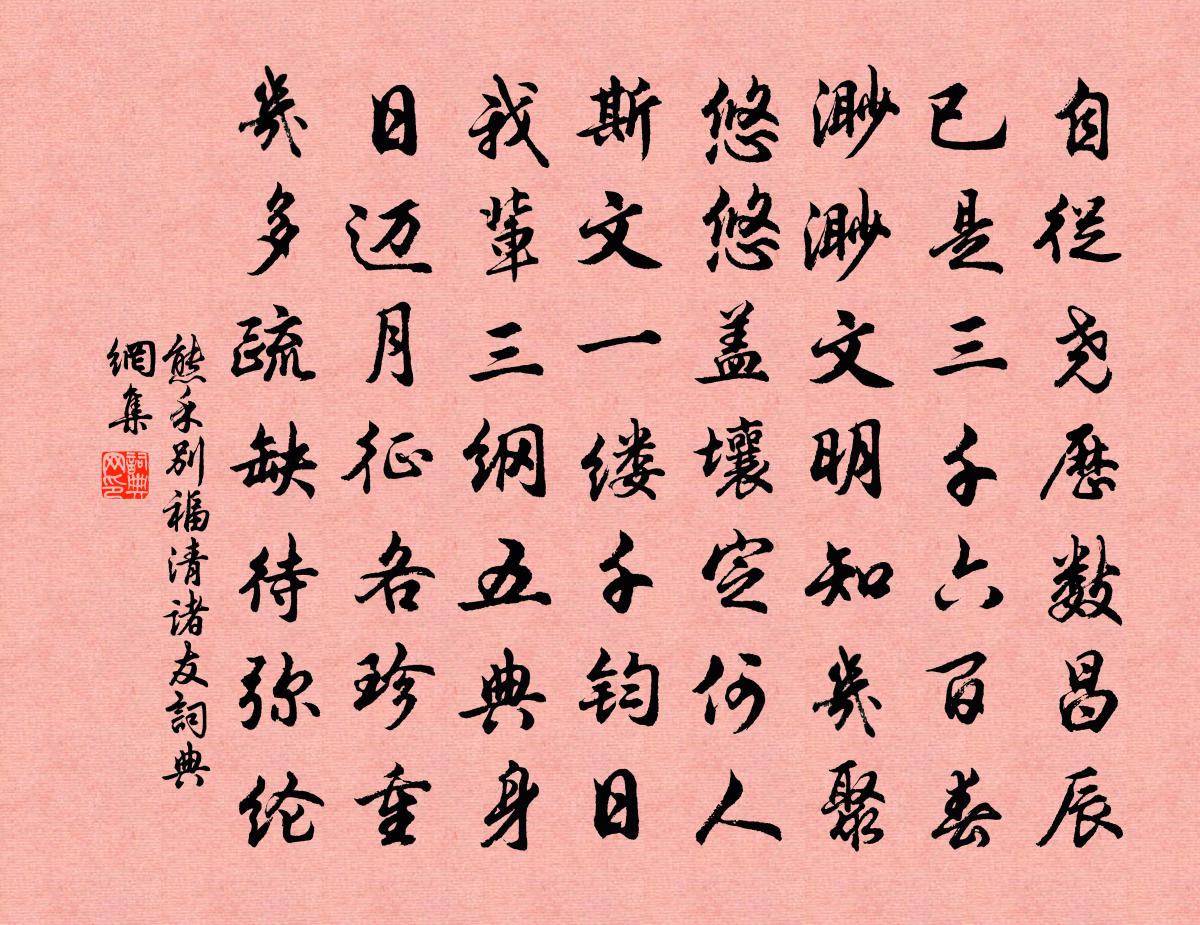 自從尧歷数昌辰
已是三千六百春
渺渺文明知幾聚
悠悠盖壤定何人
斯文一缕千钧日
我輩三纲五典身
日迈月征各珍重
幾多疏缺待弥纶
熊禾別福清諸友詞典
網集
詞典
网印